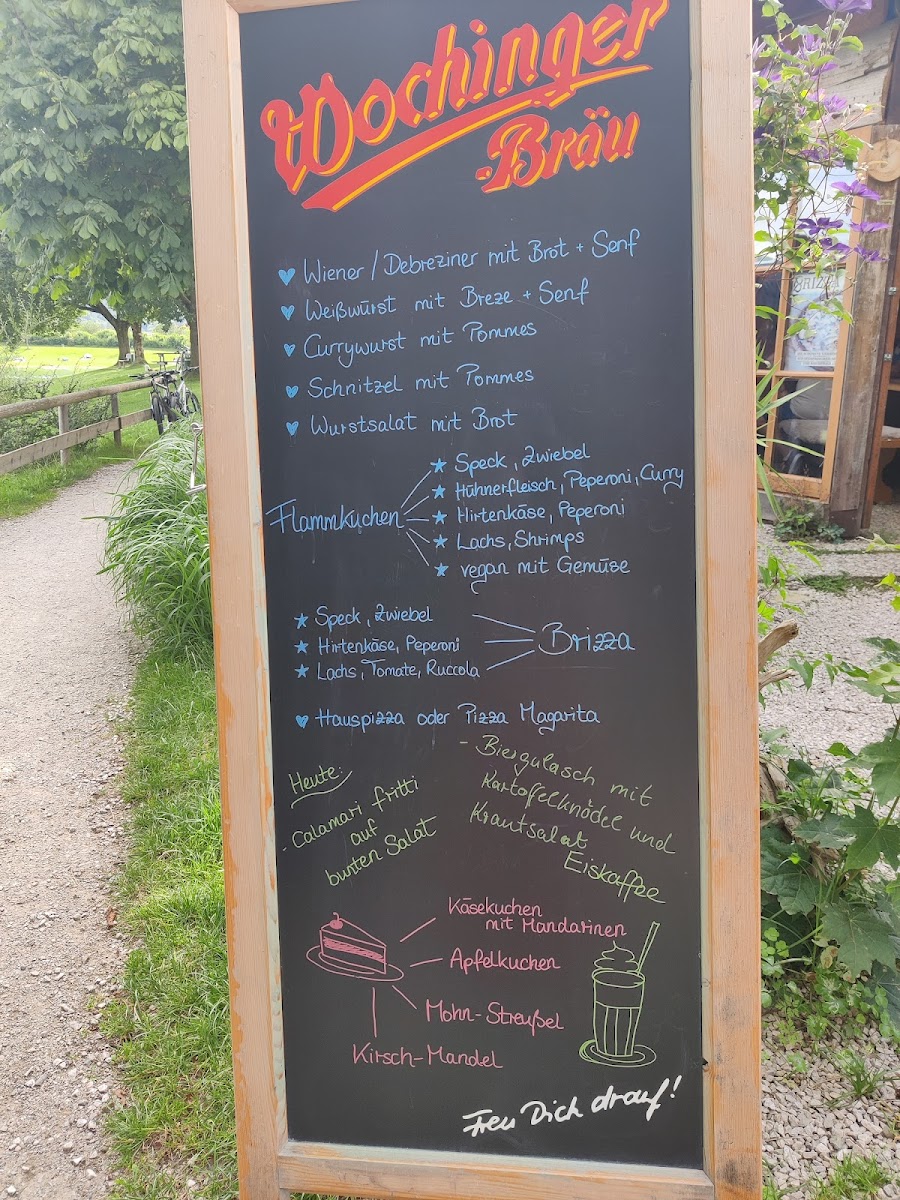 Wochinger
-Bräu
Wiener / Debreziner mit Brot + Senf
Weißwürst mit Breze + Senf
Currywurst mit Pommes
Schnitzel mit Pommes
Wurstsalat mit Brot
Flammkuchen
Speck, Zwiebel
Hühnerfleisch, Peperoni, Curry
Hirtenkäse, Peperoni
Lachs, Shrimps
vegan mit Gemüse
Speck, Zwiebel
Hirtenkäse, Peperoni
Lachs, Tomate, Ruccola
Brizza
Hauspizza oder Pizza Magarita
Heute:
- Calamari fritti
auf
bunten Salat
- Biergulasch mit
Kartoffelknödel und
Krautsalat
Eiskaffee
Käsekuchen
mit Mandarinen
Apfelkuchen
Mohn-Streußel
Kirsch-Mandel
Freu Dich drauf!
BRIZZA